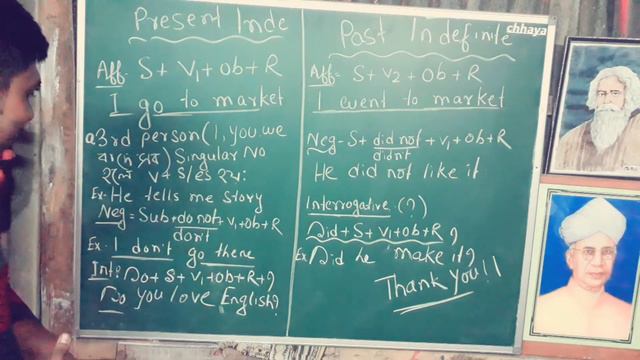 Present Inde
Aff- S + V1 + Ob + R
I go to market
3rd person (I, you we
বাদে সব) Singular No
হলে V + s/es হয়:
Ex- He tells me story
Neg = Sub + do not + V1 + Ob + R
don't
Ex. I don't go there
Int: Do + S + V1 + Ob + R + ?
Do you love English?
Past Indefinite
Aff= S + V2 + Ob + R
I went to market
Neg- S + did not + V1 + Ob + R
didn't
He did not like it
Interrogative (?)
Did + S + V1 + Ob + R ?
Ex Did he make it?
Thank You!!
chhaya